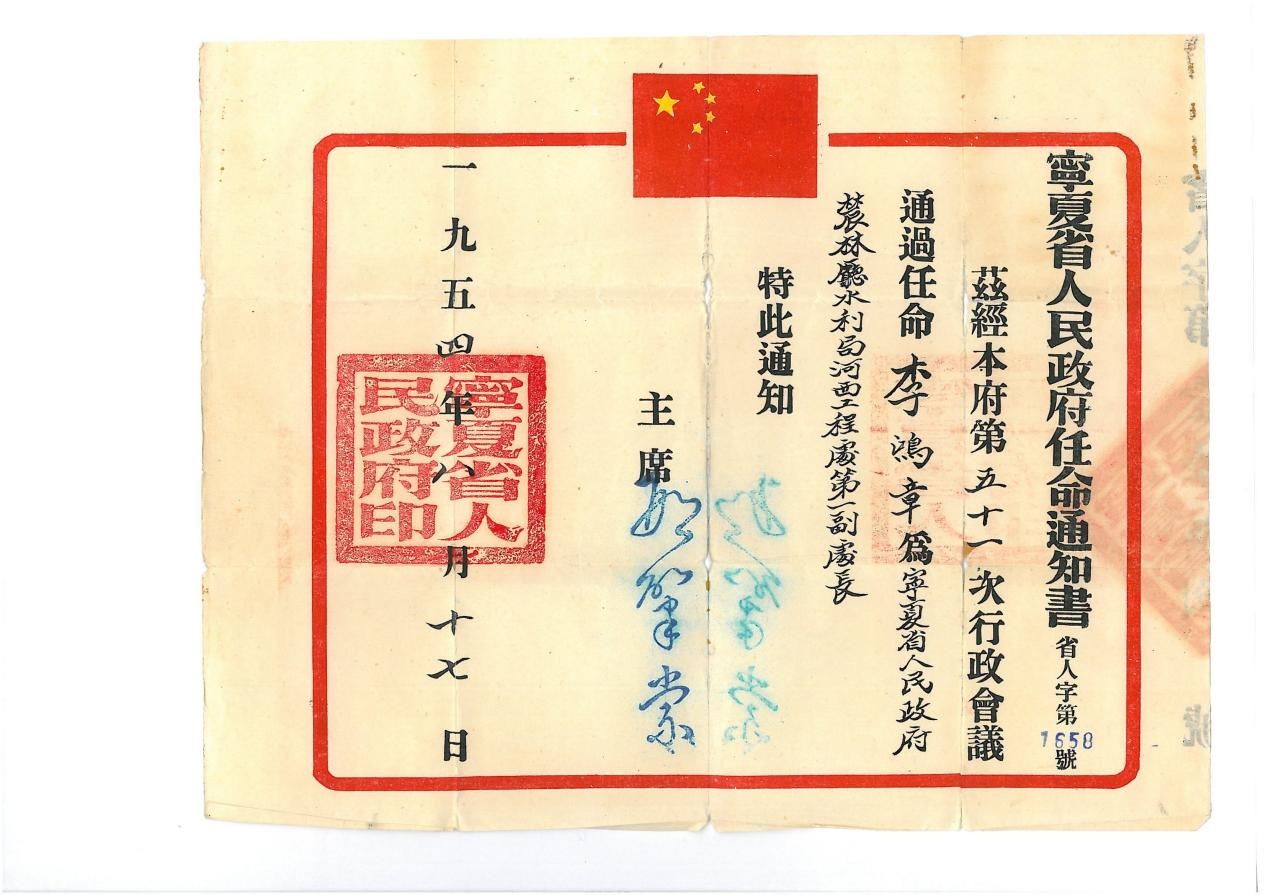 寧夏省人民政府任命通知書 省人字第1658號
茲經本府第五十一次行政會議
通過任命李鴻章爲寧夏省人民政府
農林廳水利局河西工程處第一副處長
特此通知
主席
一九五四年八月十七日
寧夏省人民政府印
省人字第
號